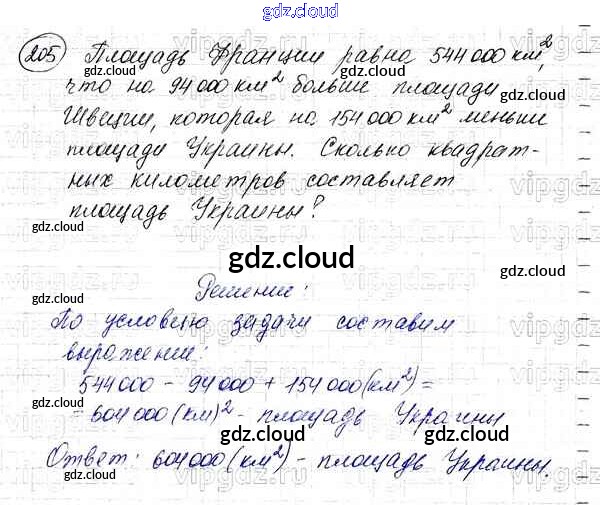 gdz.cloud
205 Площадь Франции равна 544 000 км²,
gdz.cloud
что на 94 000 км² больше площади
Швеции, которая на 154 000 км² меньше
площади Украины. Сколько квадрат-
ных километров составляет
площадь Украины?
gdz.cloud
gdz.cloud
Решение:
По условию задачи составим
выражение:
544 000 - 94 000 + 154 000 (км²) =
= 604 000 (км)² - площадь Украины
gdz.cloud
Ответ: 604 000 (км²) - площадь Украины.